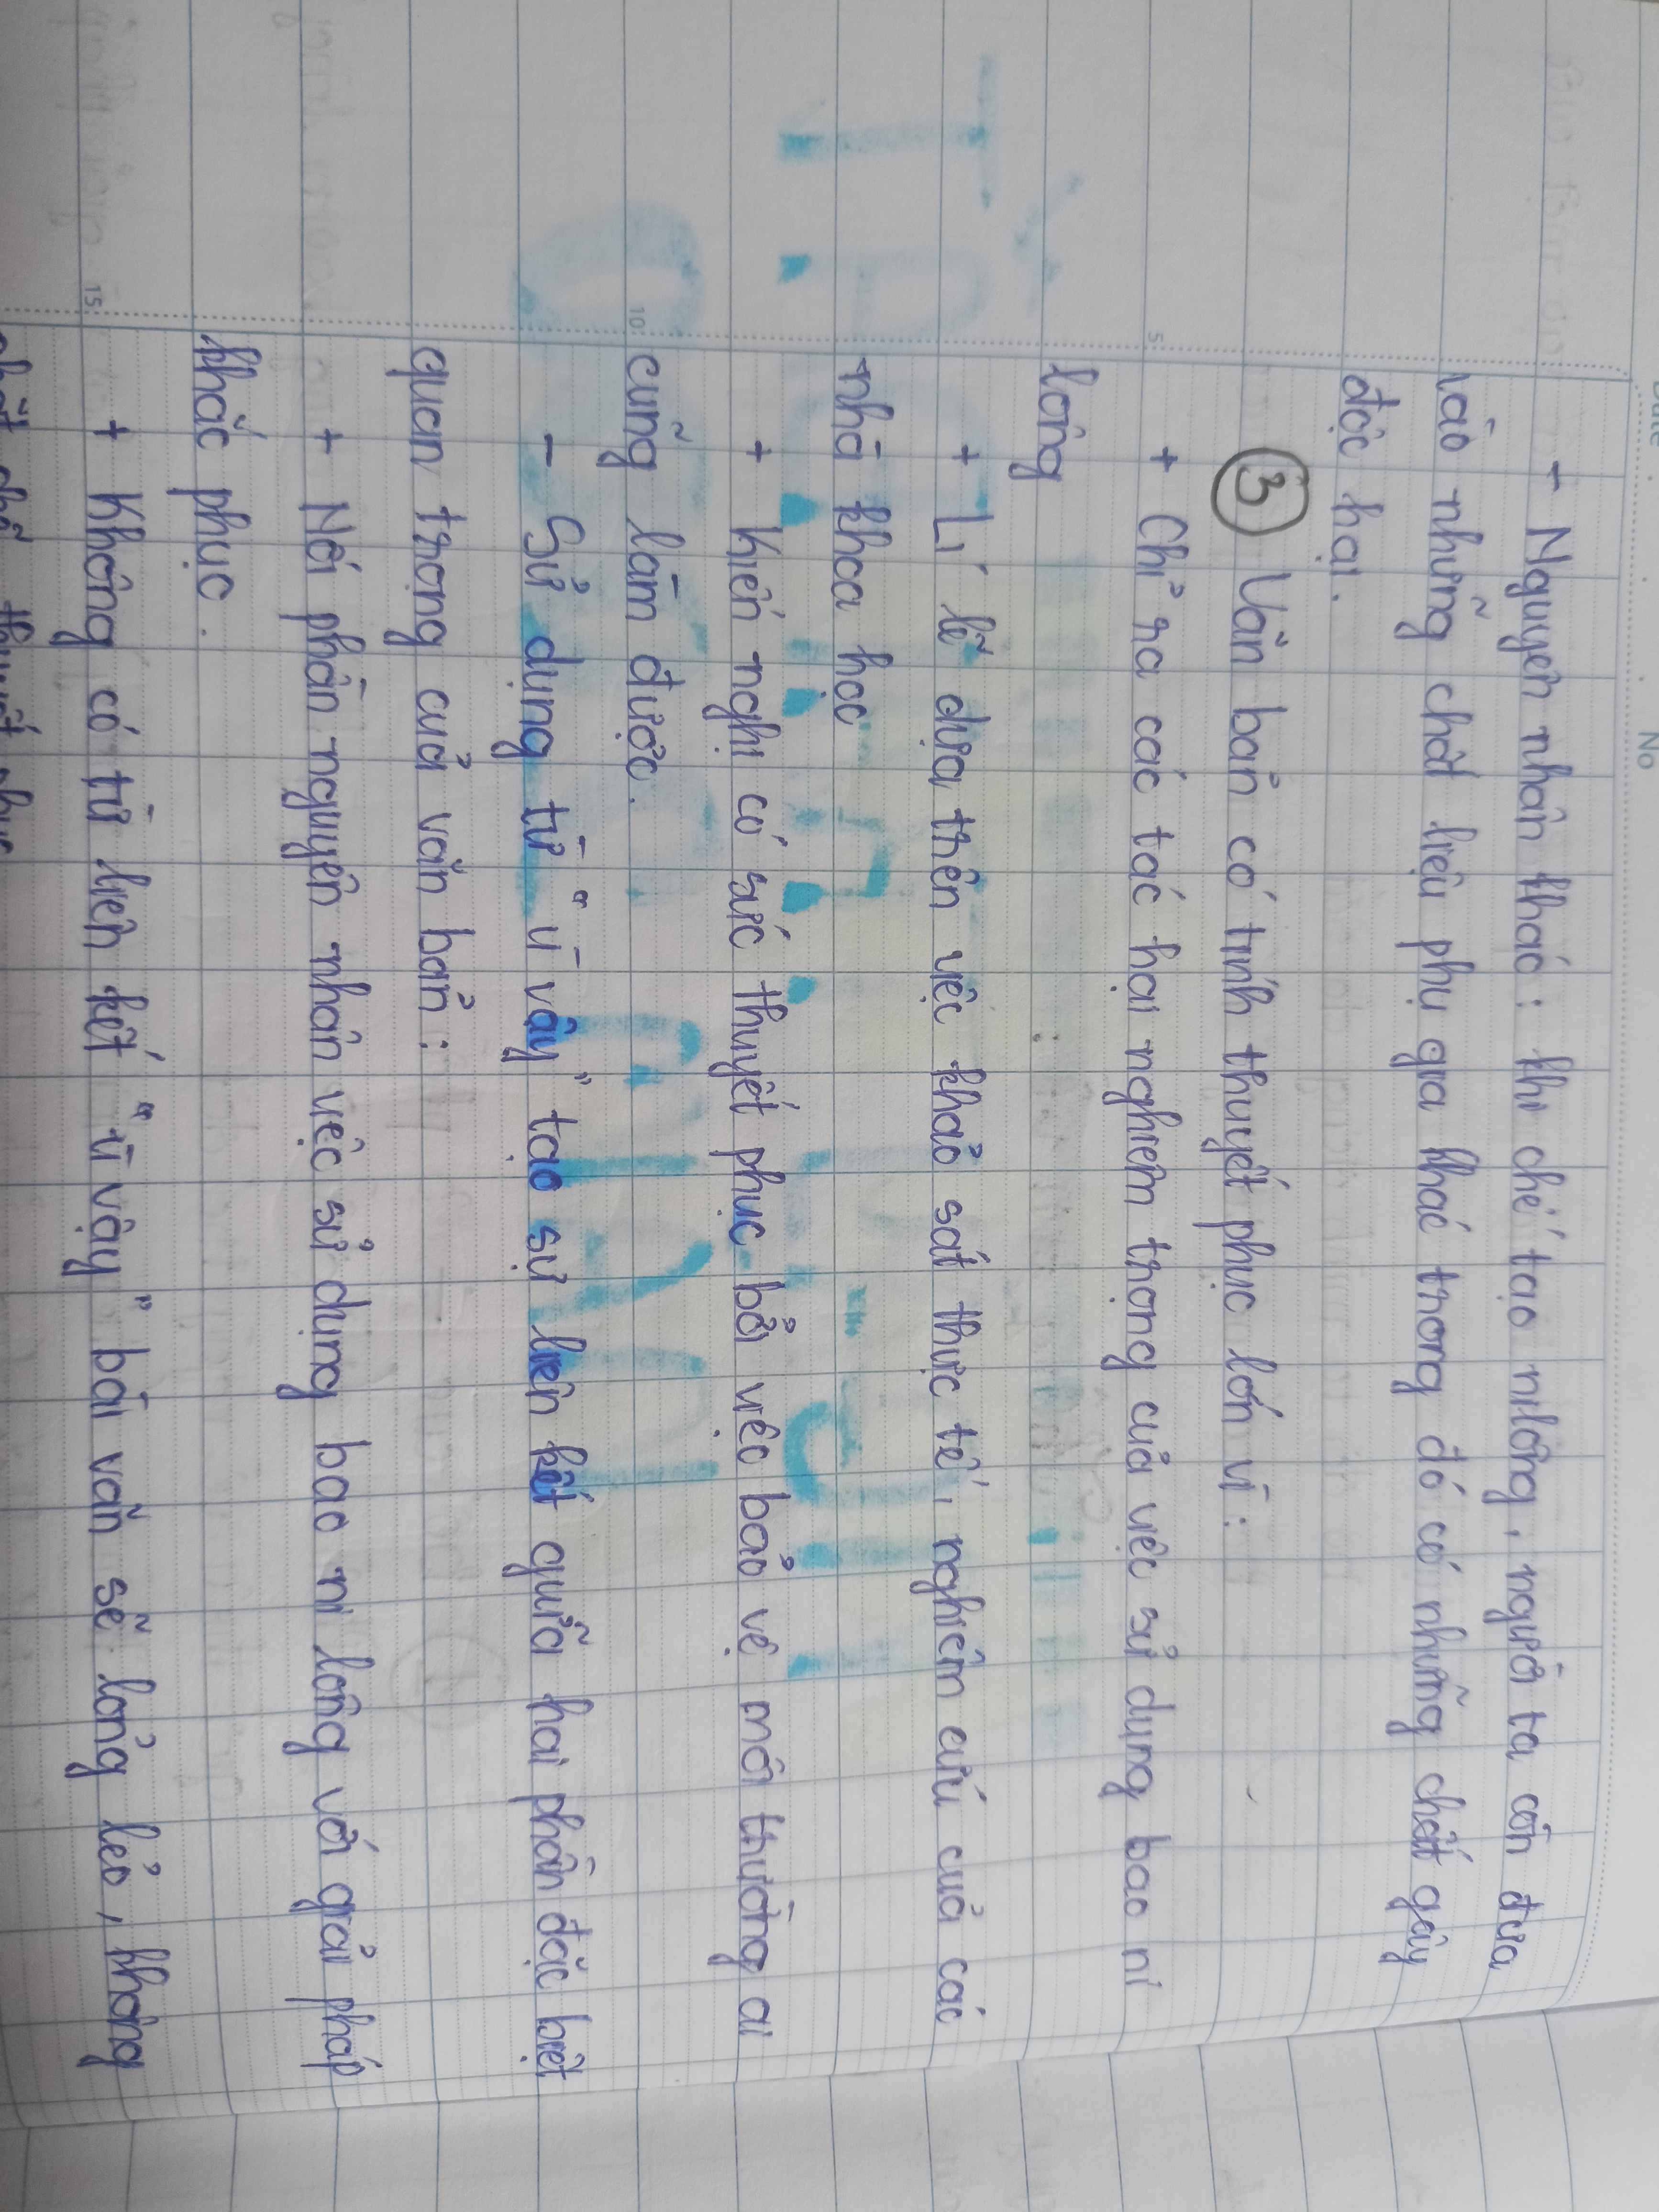 Date No
- Nguyên nhân khác: khi chế tạo nilông, người ta còn đưa
vào những chất liệu phụ gia khác trong đó có những chất gây
độc hại.
③ Văn bản có tính thuyết phục lớn vì:
+ Chỉ ra các tác hại nghiêm trọng của việc sử dụng bao ni
5
lông
+ Lí lẽ dựa trên việc khảo sát thực tế, nghiêm cứu của các
nhà khoa học
+ Kiến nghị có sức thuyết phục bởi việc bảo vệ môi thường ai
10
cũng làm được.
- Sử dụng từ "vì vậy" tạo sự liên kết giữa hai phần đặc biệt
quan trọng của văn bản:
+ Nối phần nguyên nhân việc sử dụng bao ni lông với giải pháp
khắc phục.
+ Không có từ liên kết "vì vậy" bài văn sẽ lỏng lẻo, không
15
chặt chẽ, thuyết phục